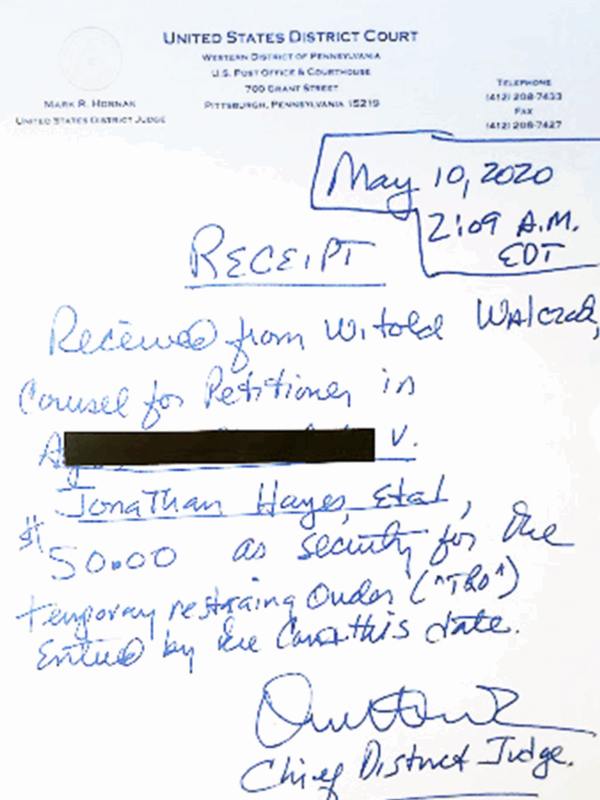 UNITED STATES DISTRICT COURT
WESTERN DISTRICT OF PENNSYLVANIA
U.S. POST OFFICE & COURTHOUSE
700 GRANT STREET
PITTSBURGH, PENNSYLVANIA 15219
MARK R. HORNAK
UNITED STATES DISTRICT JUDGE
TELEPHONE
(412) 208-7433
FAX
(412) 208-7427
May 10, 2020
2:09 A.M.
EDT
RECEIPT
Received from Witold Walczak,
Counsel for Petitioner in
v.
Jonathan Hayes, Etal,
$50.00 as security for the
temporary restraining Order ("TRO")
Entered by the Court this date.
Chief District Judge.